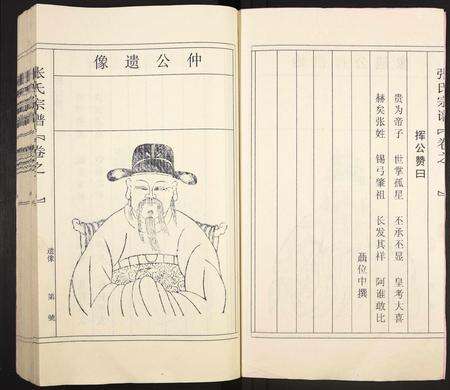 张氏宗谱『卷之 』
挥公赞曰
贵为帝子 世掌孤星 不承不显 皇考大喜
赫矣张姓 锡弓肇祖 长发其样 阿谁敢比
位中撰
仲公遗像
张氏宗谱『卷之 』
遗像 第 號